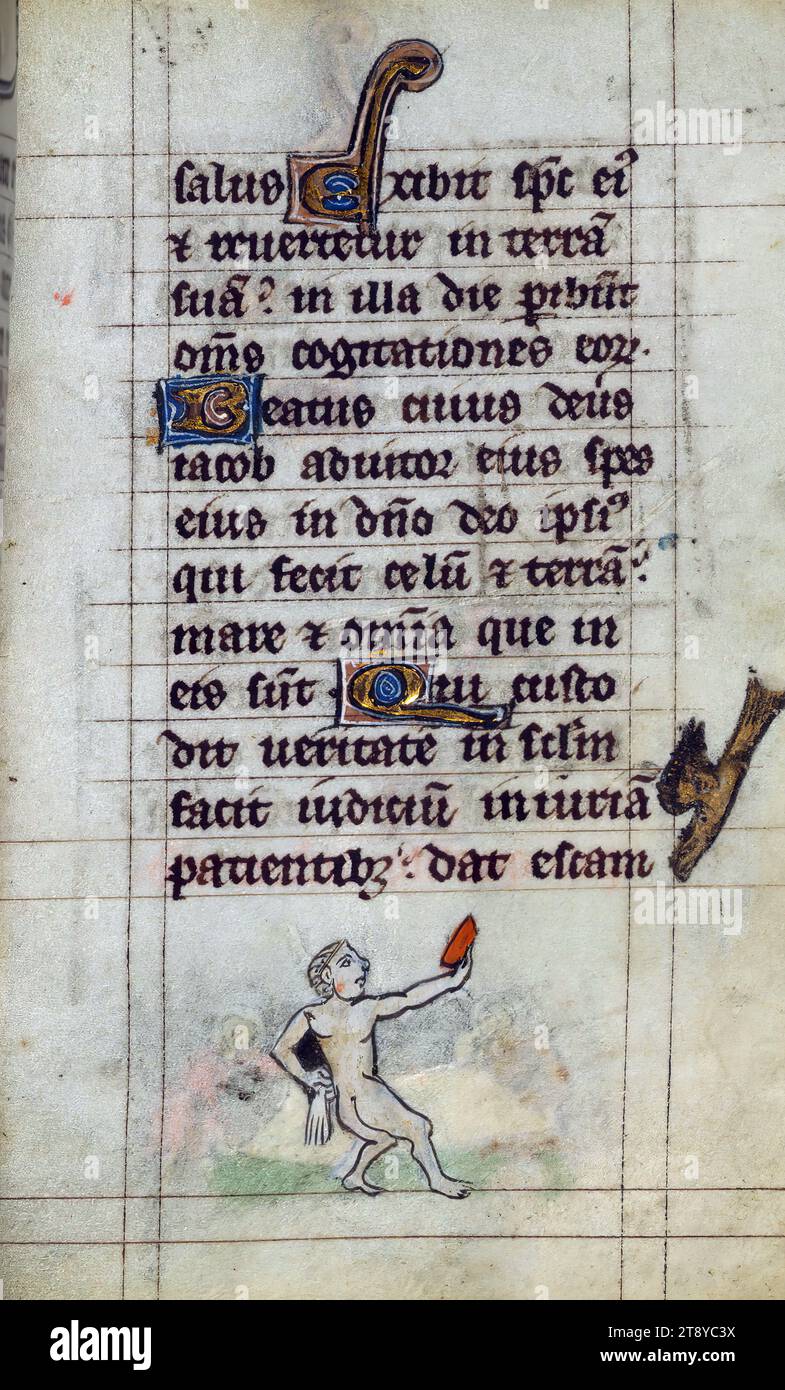 salus Exibit sp̄c ei᷒
⁊ reuertetur in terrā
suā? in illa die ꝑibūt
om̄s cogitationes eoꝝ.
Beatus cuius deus
iacob adiutor eius spes
eius in dn̄o deo ipsi᷒
qui fecit celū ⁊ terrā?
mare ⁊ omīa que in
eis sūt. Qui custo
dit ueritatē in sclm̄
facit iudiciū iniuriā
patientibꝫ? dat escam
alamy
Image ID: 2T8YC3X
www.alamy.com